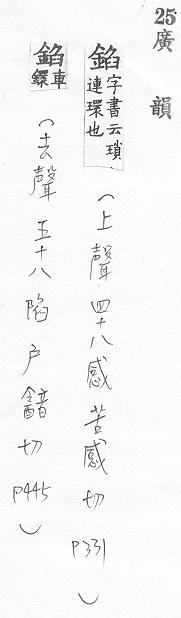 25廣韻
錎字書云瑣連環也(上聲 四十八感 苦感切 p331)
錎車鐶(去聲 五十八陷 戶韽切 p445)